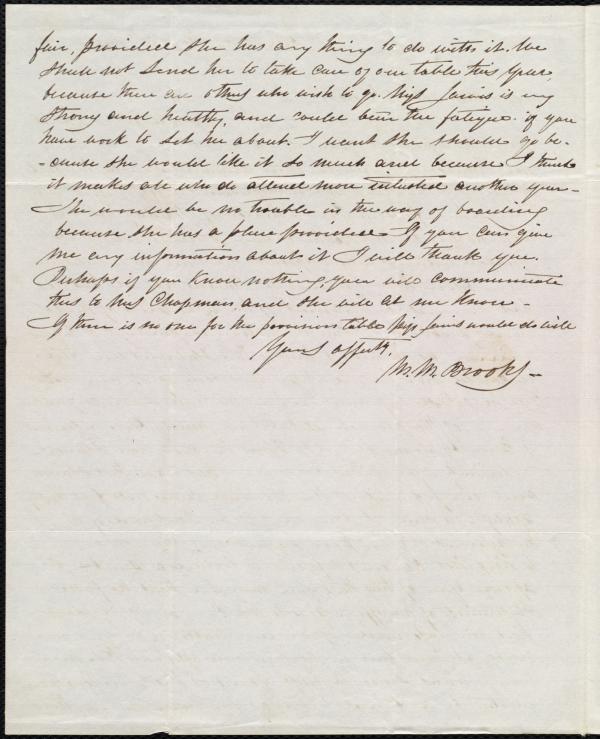 fair, provided she has any thing to do with it. We
shall not send her to take care of our table this year,
because there are others who wish to go. Miss Jarvis is very
strong and healthy, and could bear the fatigue. if you
have work to set her about. I want she should go be-
-cause she would like it so much and because I think
it makes all who do attend more interested another year -
She would be no trouble in the way of boarding
because she has a place provided. If you can give
me any information about it I will thank you.
Perhaps if you know nothing, you will communicate
this to Mrs Chapman, and she will let me know -
If there is no one for the provision table Miss Jarvis would do well
Yours affectly.
M. M. Brooks -